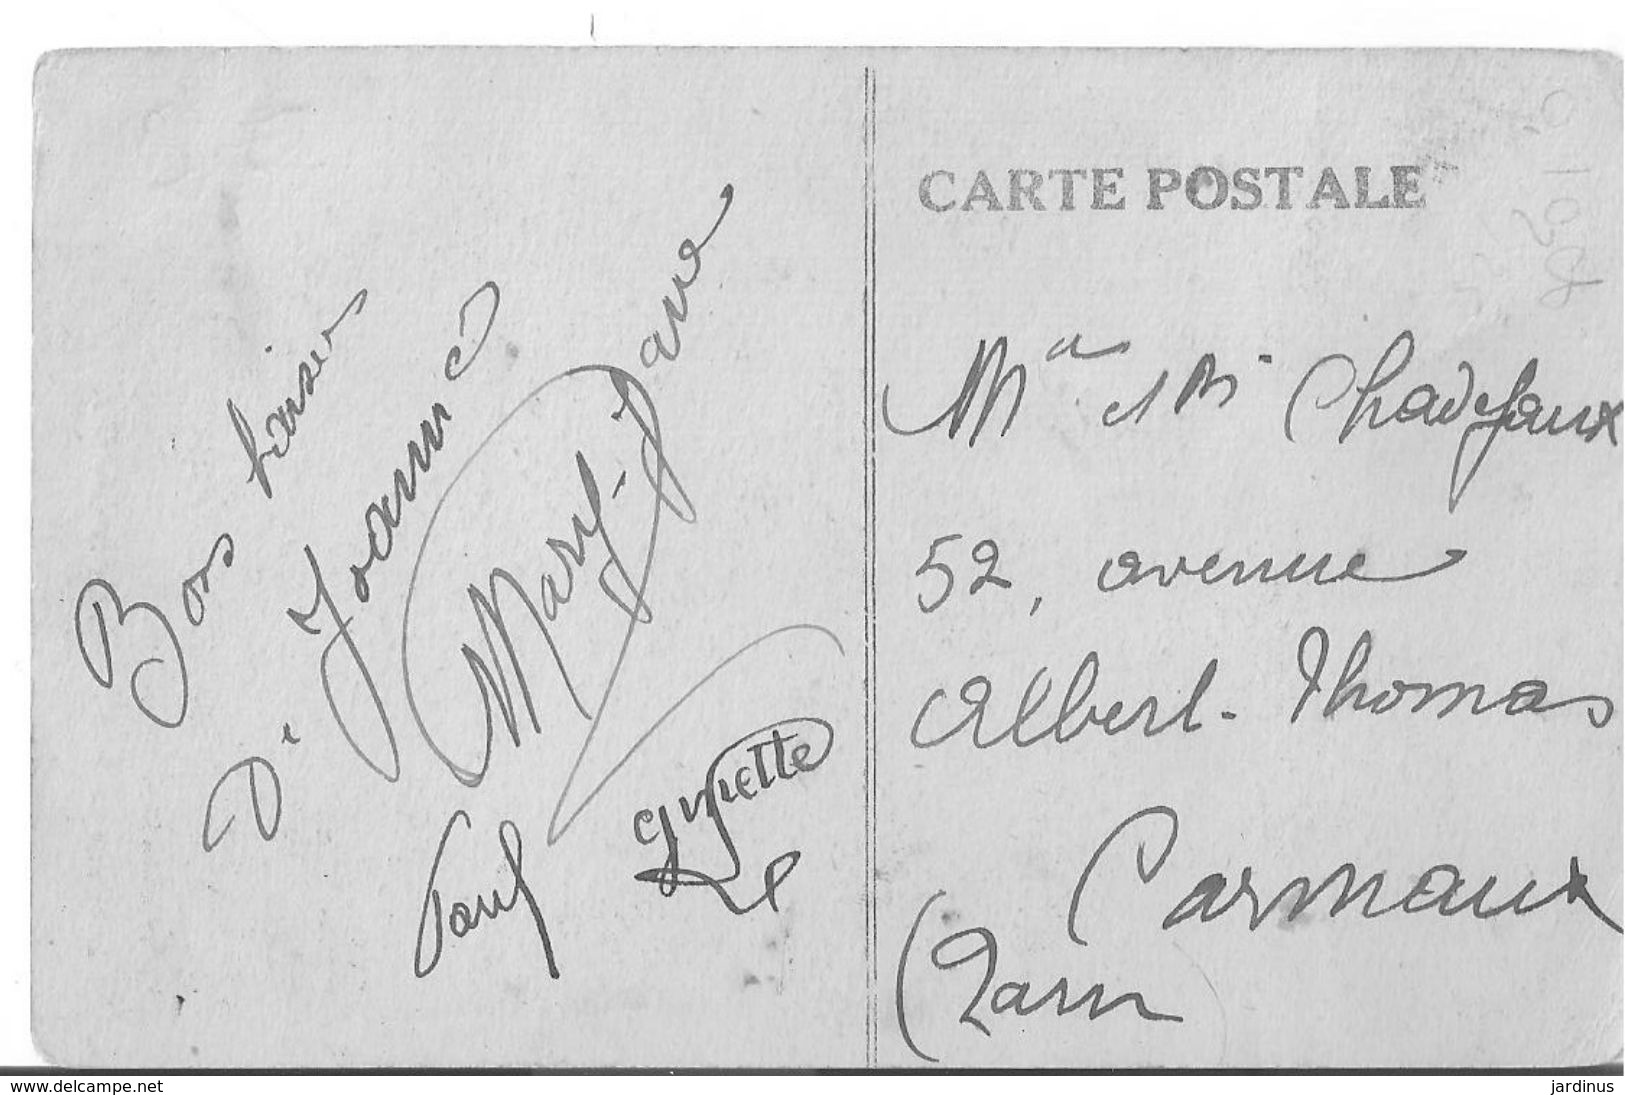 Bons baisers
De Joanné
Mary-Jane
Paul
Gypette
CARTE POSTALE
Me et Mr Chadefaux
52, avenue
Albert-Thomas
Carmaux
(Tarn
www.delcampe.net
jardinus